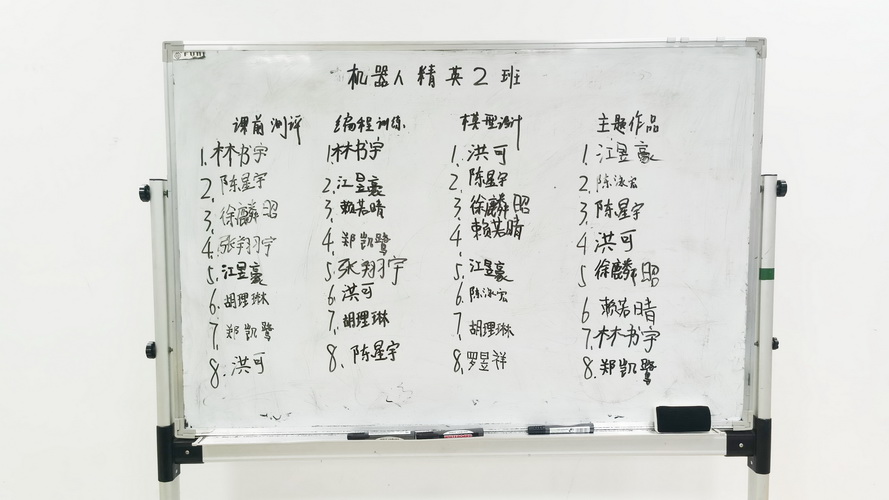 机器人精英2班
课前测评 编程训练 模型设计 主题作品
1.林书宇 1林书宇 1.洪可 1.江昱豪
2.陈星宇 2.江昱豪 2.陈星宇 2.陈泳宏
3.徐麟昭 3.赖若晴 3.徐麟昭 3.陈星宇
4.张翔宇 4.郑凯鹭 4赖若晴 4洪可
5.江昱豪 5.张翔宇 5.江昱豪 5徐麟昭
6.胡理琳 6.洪可 6.陈泳宏 6赖若晴
7.郑凯鹭 7.胡理琳 7.胡理琳 7.林书宇
8.洪可 8.陈星宇 8.罗昱祥 8.郑凯鹭